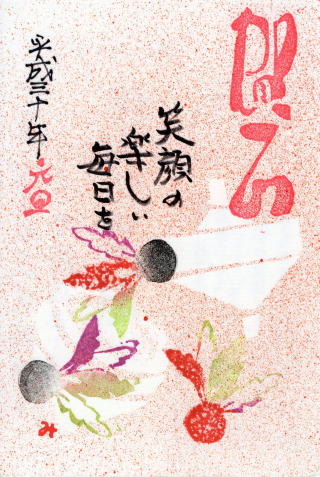 賀正
笑顔の
楽しい
毎日を
平成三十年 元旦
み